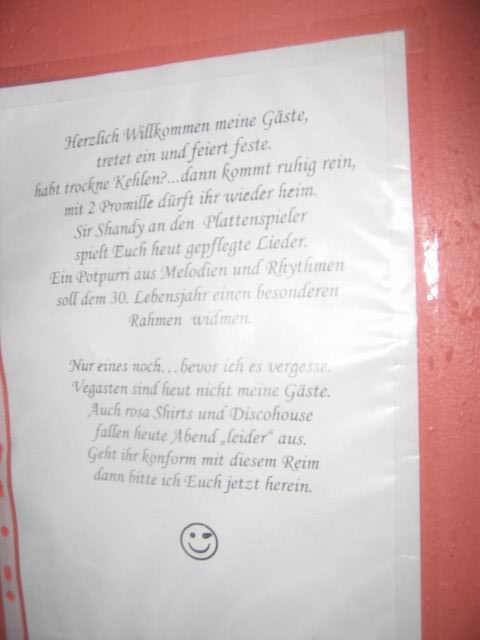 Herzlich Willkommen meine Gäste,
tretet ein und feiert feste.
habt trockne Kehlen?...dann kommt ruhig rein,
mit 2 Promille dürft ihr wieder heim.
Sir Shandy an den Plattenspieler
spielt Euch heut gepflegte Lieder.
Ein Potpurri aus Melodien und Rhythmen
soll dem 30. Lebensjahr einen besonderen
Rahmen widmen.
Nur eines noch...bevor ich es vergesse.
Vegasten sind heut nicht meine Gäste.
Auch rosa Shirts und Discohouse
fallen heute Abend „leider“ aus.
Geht ihr konform mit diesem Reim
dann bitte ich Euch jetzt herein.